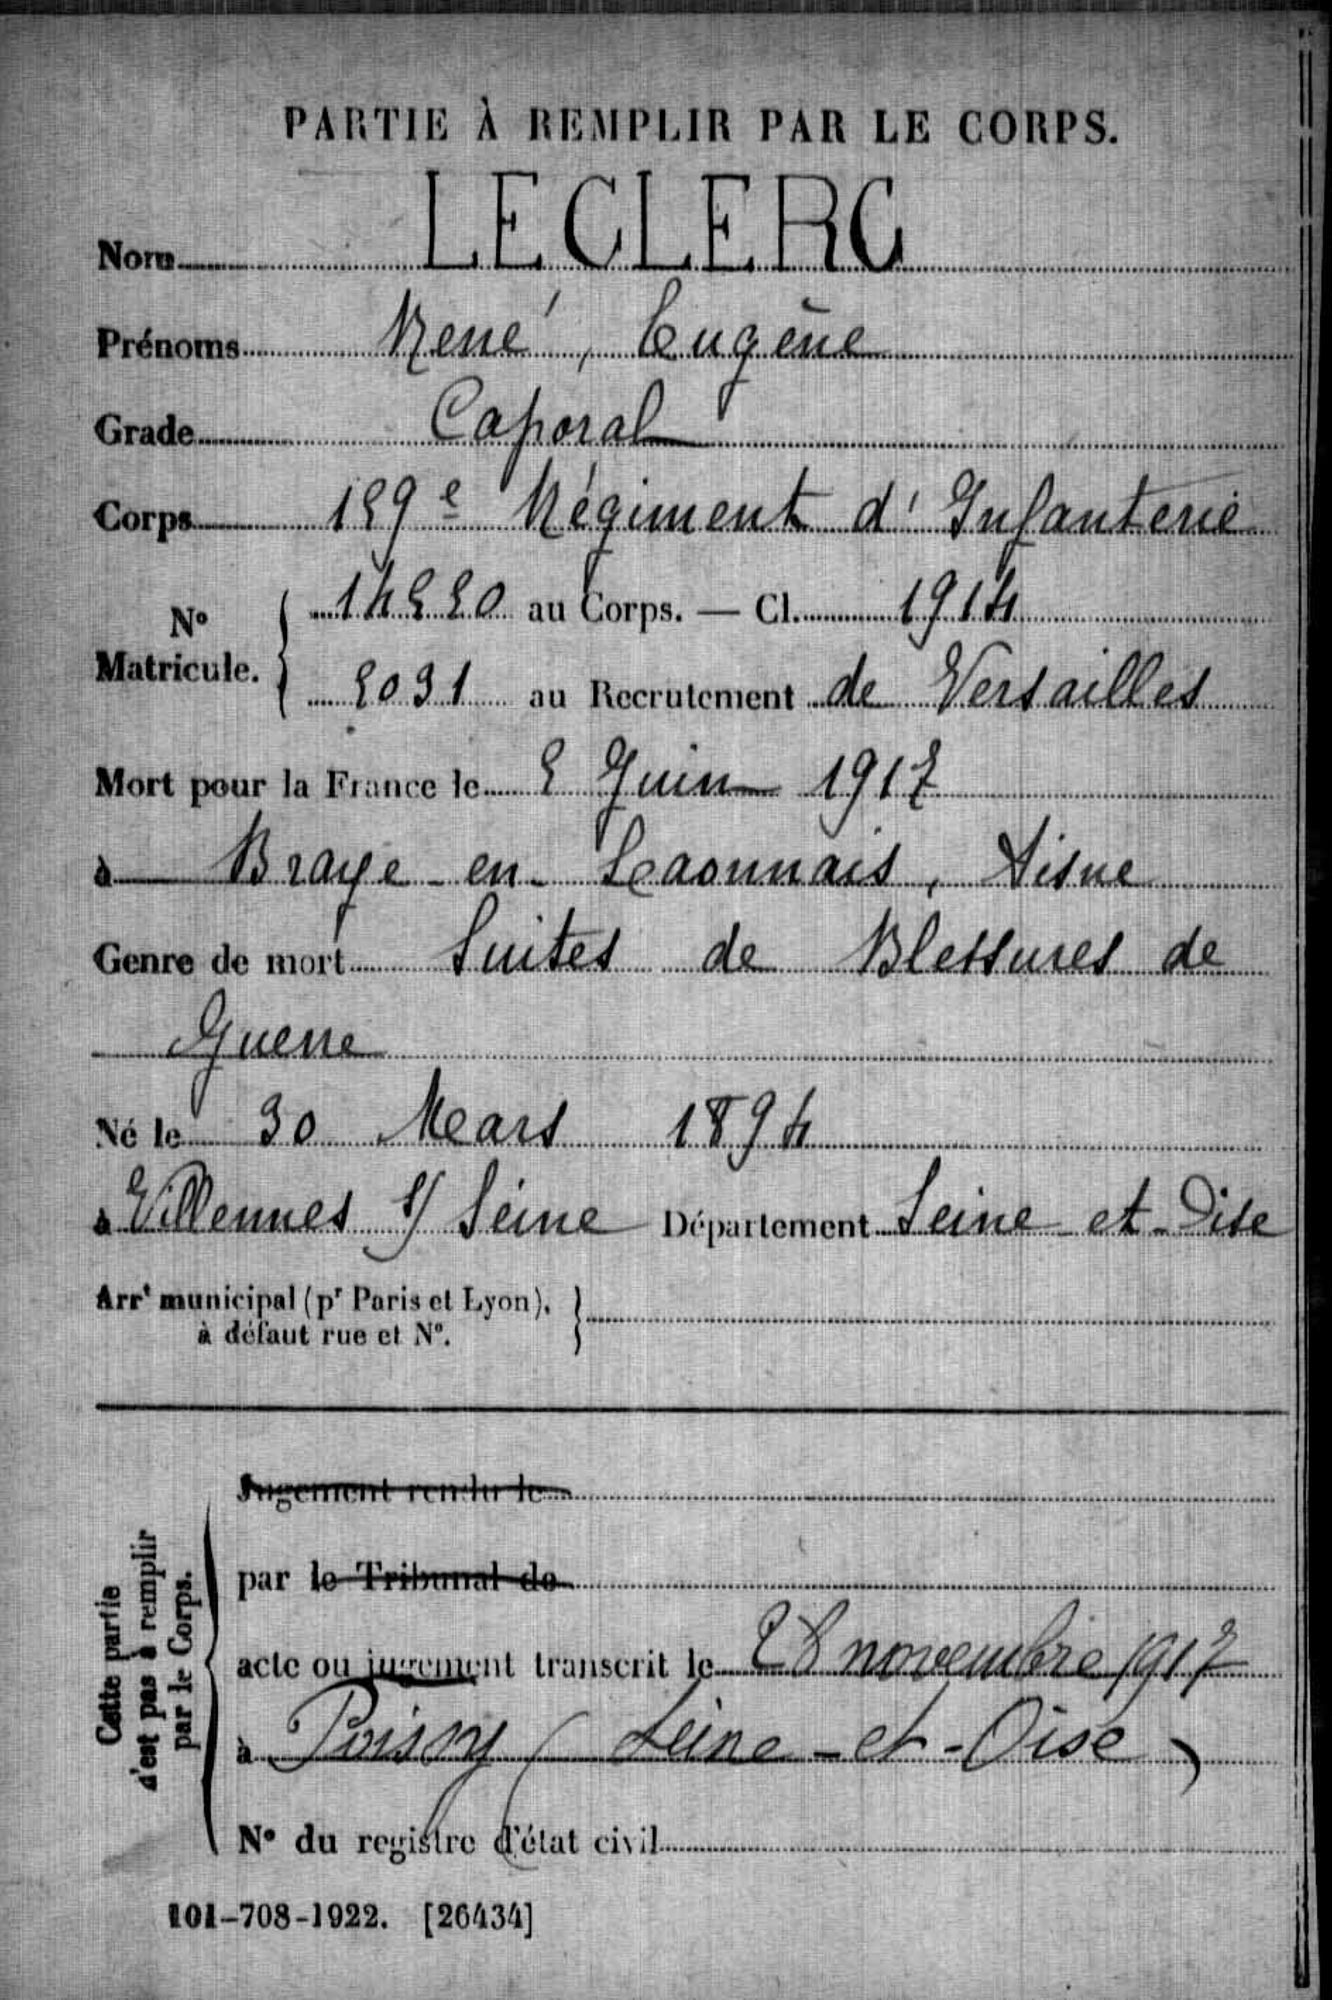 PARTIE À REMPLIR PAR LE CORPS.
Nom LECLERC
Prénoms René, Eugène
Grade Caporal
Corps 129e Régiment d'Infanterie
N° Matricule. { 14220 au Corps. — Cl. 1914
2031 au Recrutement de Versailles
Mort pour la France le 2 Juin 1917
à Braye-en-Laonnais, Aisne
Genre de mort Suites de Blessures de
Guerre
Né le 30 Mars 1894
à Villennes s/ Seine Département Seine et-Oise
Arrt municipal (pr Paris et Lyon), }
à défaut rue et N°.
Cette partie
n'est pas à remplir
par le Corps.
Jugement rendu le
par le Tribunal de
acte ou jugement transcrit le 28 novembre 1917
à Poissy (Seine-et-Oise)
N° du registre d'état civil
101-708-1922. [26434]